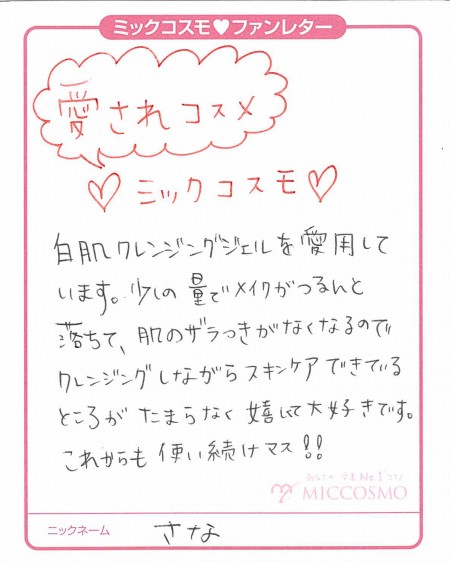 ミックコスモ♥ファンレター
愛されコスメ
♡ミックコスモ♡
白肌クレンジングジェルを愛用して
います。少しの量でメイクがつるんと
落ちて、肌のザラつきがなくなるので
クレンジングしながらスキンケアできている
ところがたまらなく嬉しくて大好きです。
これからも使い続けマス!!
MICCOSMO
ニックネーム さな